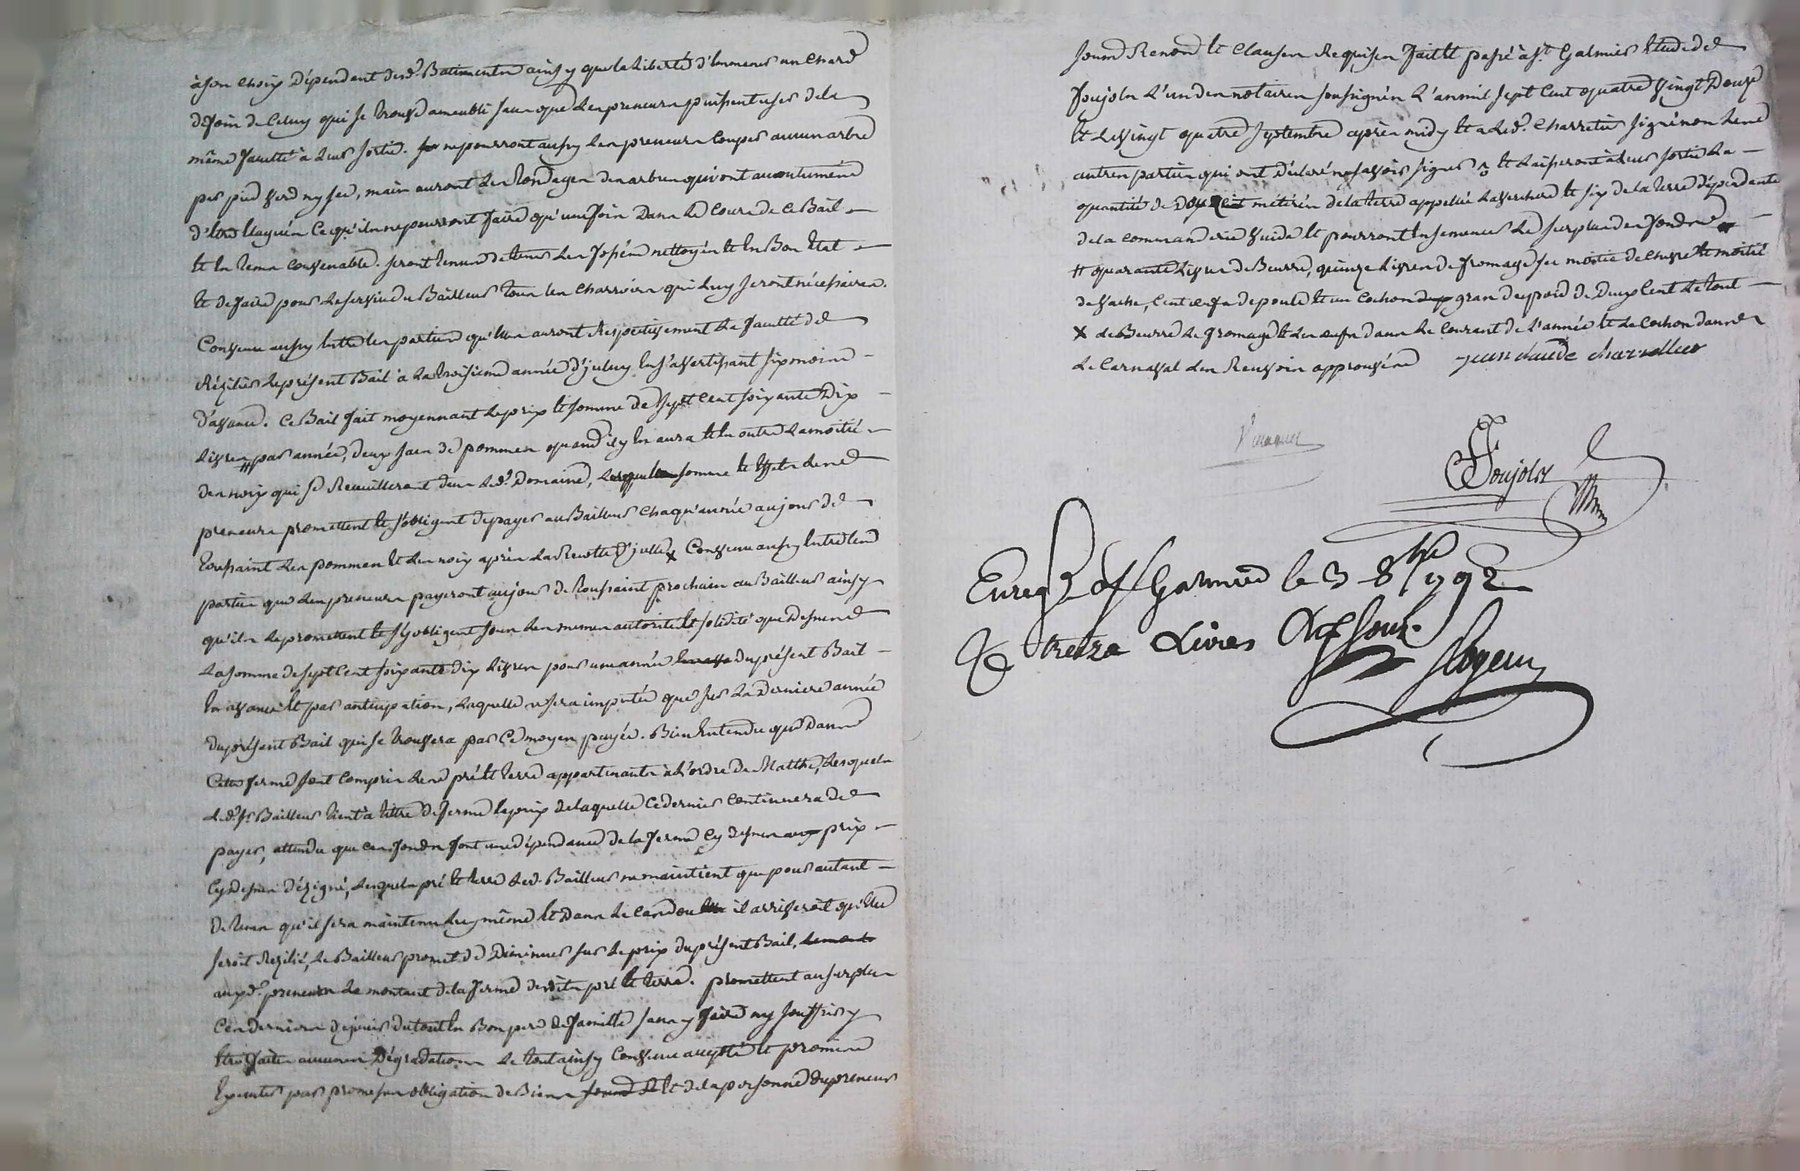 à son choix dépendant desd. Batiments ainsy que la liberté d'emmener un chard
de foin de celuy qui se trouve ameubli sans que les preneurs puissent user de la
même faculté à leur sortie. ne pourront aussy les preneurs couper aucun arbre
par pied verd ny sec, mais auront les tondages des arbres qui ont accoutumé
d'être élagués ce qu'ils ne pourront faire qu'une fois dans le cours de ce Bail
et en tems convenable. seront tenus de tenir les fossés nettoyés et en Bon état
et de faire pour le service du Bailleur tous les charrois qui luy seront nécessaires.
Convenu aussy entre les parties qu'elles auront respectivement la faculté de
résilier le présent Bail à la troisieme année d'iceluy en s'avertissant six mois
d'avance. Ce Bail fait moyennant le prix et somme de sept cent soixante dix
livres # par année, deux sacs de pommes quand il y en aura et en outre la moitié
des noix qui se recueilleront dans led. Domaine, laquelle somme et
preneurs promettent et s'obligent de payer au Bailleur chaqu'année au jour de
toussaint les pommes et les noix après la recolte d'icelles x Convenu aussy entre les
parties que les preneurs payeront au jour de toussaint prochain au Bailleur ainsy
qu'ils le promettent et s'y obligent sous les memes autorité et solidité que dessus
la somme de sept cent soixante dix livres pour une année du présent Bail
en avance et par anticipation, laquelle ne sera imputée que sur la derniere année
du présent Bail qui se trouvera par ce moyen payée. Bien Entendu que dans
Cette ferme sont compris les pré et terre appartenants à l'ordre de Malthe, lesquels
led. Sr. Bailleur tient à titre de ferme le prix de laquelle ce dernier continuera de
payer, attendu que ces fonds sont une dépendance de la ferme cy dessus aux prix
cy dessus désigné, lesquels pré et terre led. Bailleur ne maintient que pour autant
de tems qu'il sera maintenu luy même et dans le cas ou il arriveroit qu'elle
seroit résilié, le Bailleur promet de diminuer sur le prix du présent Bail,
auxd. preneurs le montant de la ferme desdits pré et terre. promettent au surplus
ces derniers de jouir du tout en Bon pere de famille sans y faire ny souffrir y
être faite aucunes dégradations le tout ainsy convenu accepté et promis
Executer par promesses obligation de Biens et de la personne du preneur
soum. Renon. et clauses requises fait et passé à St. Galmier Etude de
Poujols l'un des notaires soussignés l'an mil sept cent quatre vingt douze
et le vingt quatre septembre après midy et a led. Charretier signé non les
autres parties qui ont déclaré ne savoir signer et laisseront à leur sortie la
quantité de métérés de la terre appellée la verchere et six de la terre dépendante
de la commanderie vuide et pourront ensemencer le surplus des fonds
# quarante livres de Beurre, quinze livres de fromage sec moitié de chevre et moitié
de vache, Cent oeufs de poule et un cochon gras du poid de deux cent le tout
x le Beurre le fromage et les oeufs dans le courant de l'année et le cochon dans
le carnaval les Renvois approuvés
Poujols
Enreg. à St Galmier le 3 8bre 1792
R treize Livres